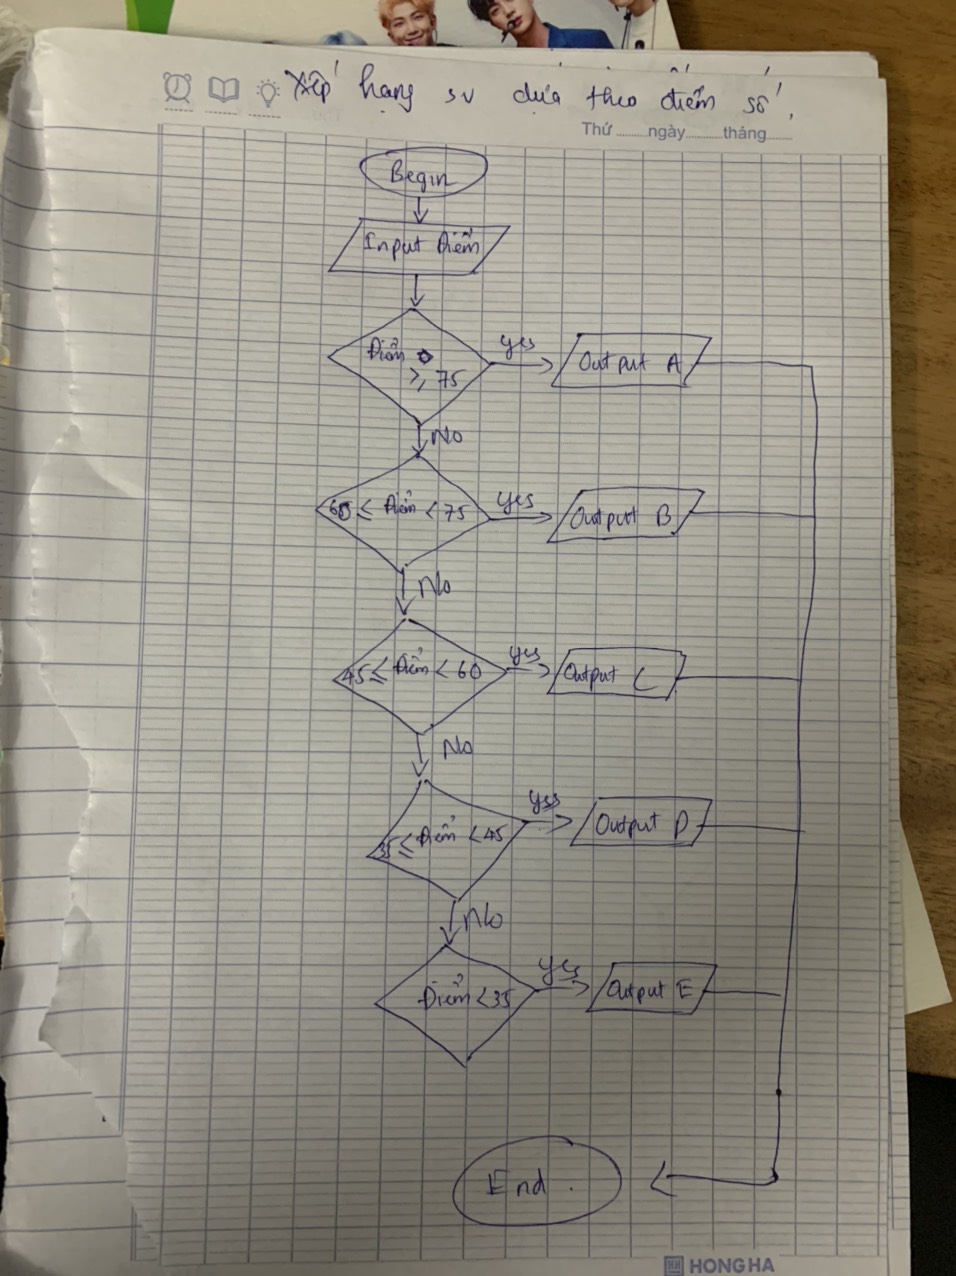 Xếp hạng sv dựa theo điểm số,
Thứ ........ngày........tháng........
Begin
Input Điểm
Điểm
≥ 75
yes
Output A
No
60 ≤ Điểm < 75
yes
Output B
No
45 ≤ Điểm < 60
yes
Output C
No
35 ≤ Điểm < 45
yes
Output D
No
Điểm < 35
yes
Output E
End.
HH HONG HA